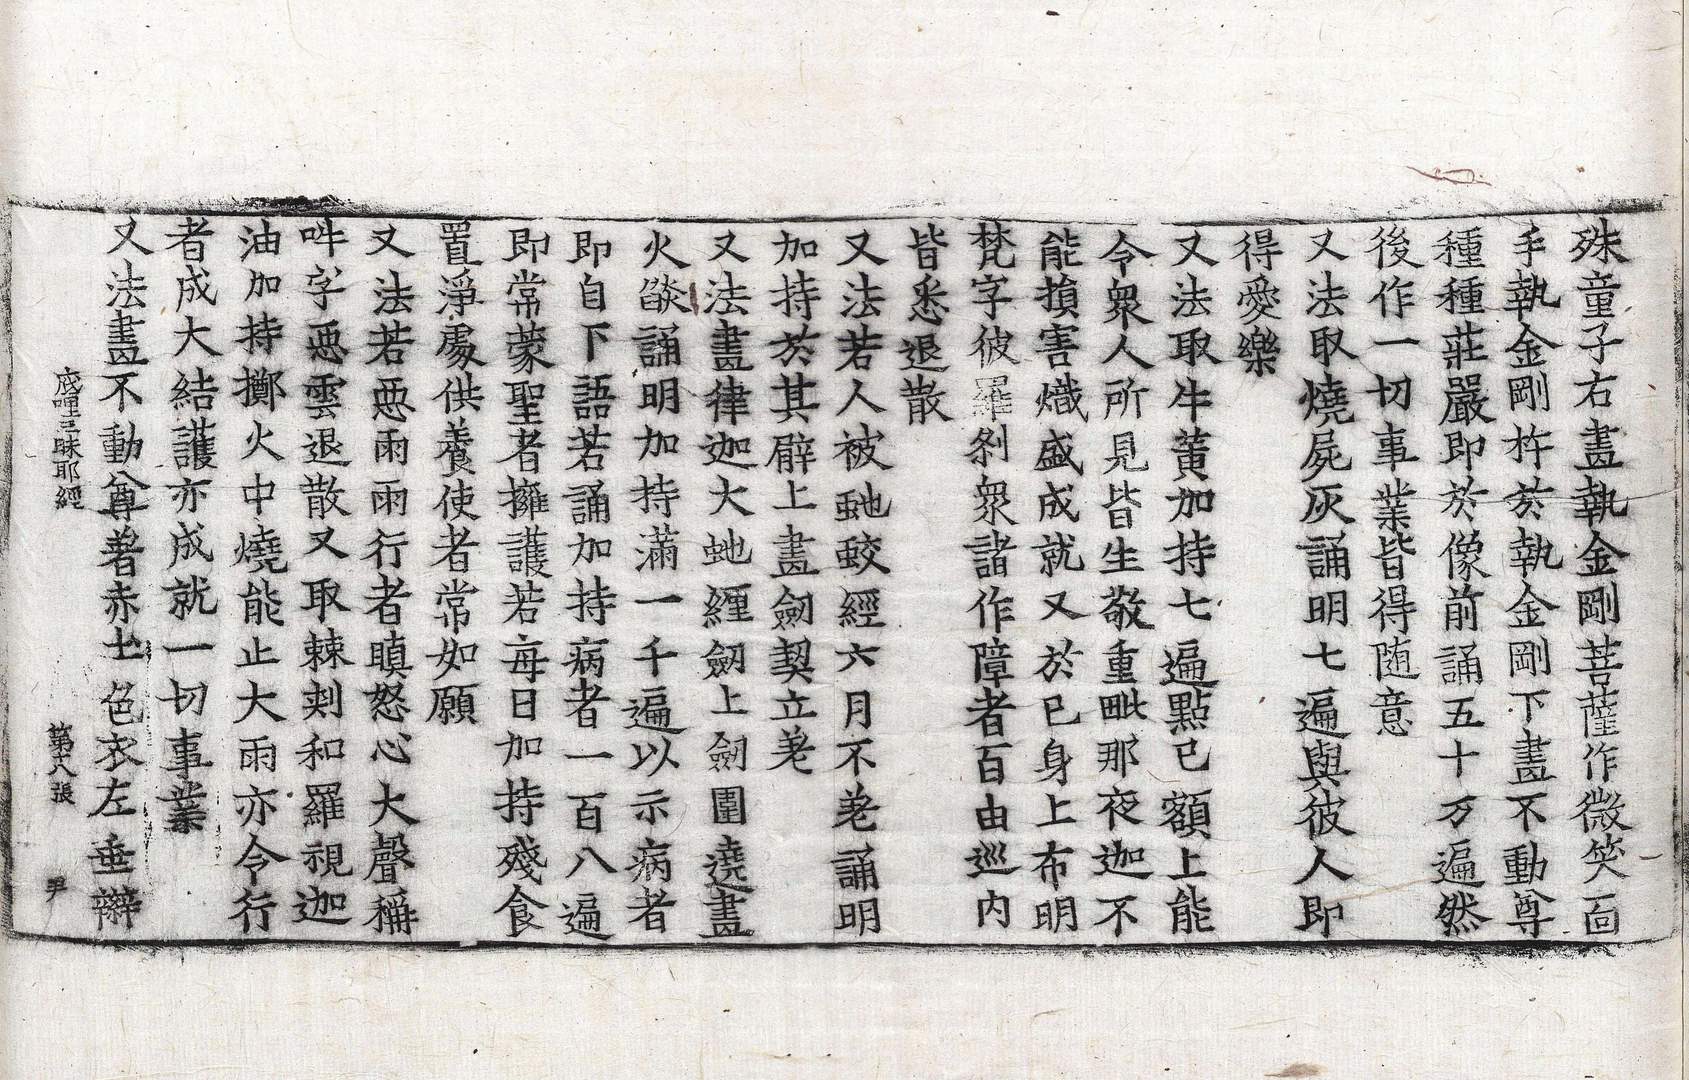 殊童子右畫執金剛菩薩作微笑面
手執金剛杵於執金剛下畫不動尊
種種莊嚴即於像前誦五十万遍然
後作一切事業皆得随意
又法取燒屍灰誦明七遍與彼人即
得愛樂
又法取牛黃加持七遍點己額上能
令衆人所見皆生敬重毗那夜迦不
能損害熾盛成就又於己身上布明
梵字彼羅刹衆諸作障者百由巡內
皆悉退散
又法若人被虵蛟經六月不差誦明
加持於其臂上畫劒契立差
又法畫律迦大虵纏劒上劒圍遶畫
火燄誦明加持滿一千遍以示病者
即自下語若誦加持病者一百八遍
即常蒙聖者擁護若每日加持殘食
置淨處供養使者常如願
又法若惡雨雨行者瞋怒心大聲稱
吽字惡雲退散又取棘刾和羅視迦
油加持擲火中燒能止大雨亦令行
者成大結護亦成就一切事業
又法畫不動尊著赤土色衣左垂辮
底哩三昧耶經 第十八張 尹